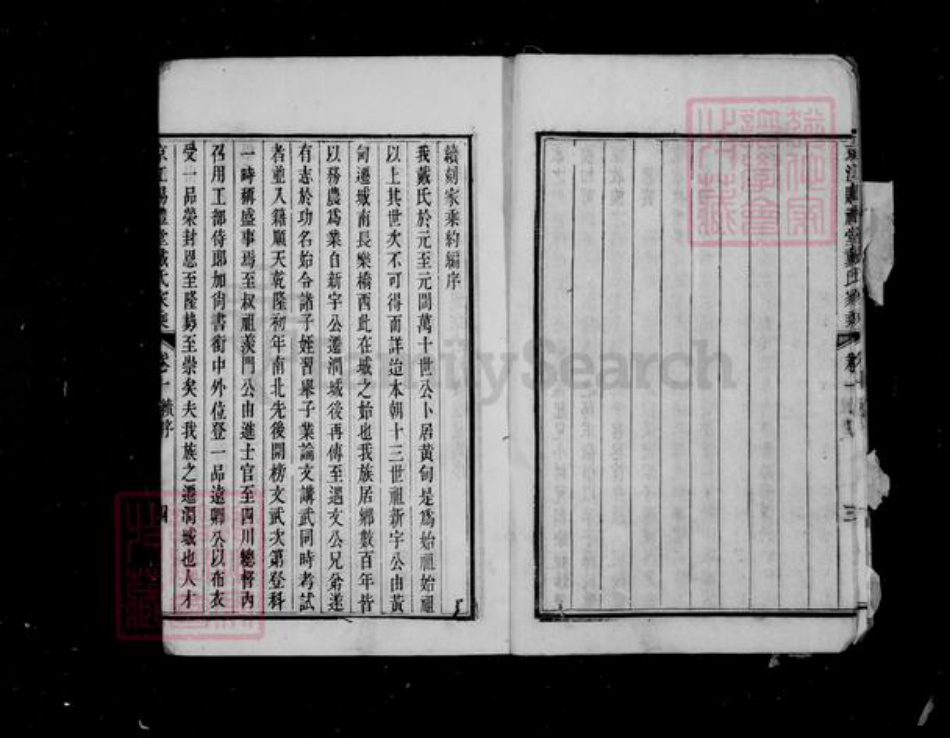 續刻家乘約編序
我戴氏於元至元間萬十世公卜居黃甸是爲始祖始祖
以上其世次不可得而詳迨本朝十三世祖新宇公由黃
甸遷城南長樂橋西此在城之始也我族居鄉數百年皆
以務農爲業自新宇公遷潤城後再傳至遇文公兄弟遂
有志於功名始令諸子姪習舉子業論文講武同時考試
者並入籍順天乾隆初年南北先後開榜文武次第登科
一時稱盛事焉至叔祖羨門公由進士官至四川總督內
召用工部侍郎加尚書銜中外位登一品遠卿公以布衣
受一品榮封恩至隆勢至崇矣夫我族之遷潤城也人才
京江 禮堂戴氏家乘 卷一 續序 四
堂戴氏家乘 卷一 三
FamilySearch